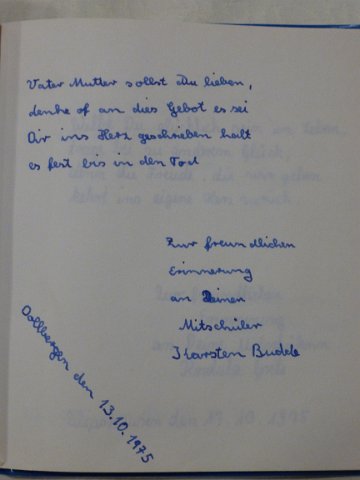 Vater Mutter sollst du lieben,
denke of an dies Gebot es sei
Dir ins Herz geschrieben halt
es fest bis in den Tod
Zur freundlichen
Erinnerung
an Deinen
Mitschüler
Karsten Budde
Dollbergen den 13.10.1975